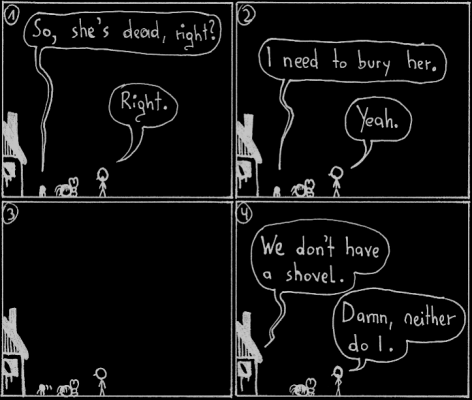 1
So, she's dead, right?
Right.
2
I need to bury her.
Yeah.
3
4
We don't have
a shovel.
Damn, neither
do I.